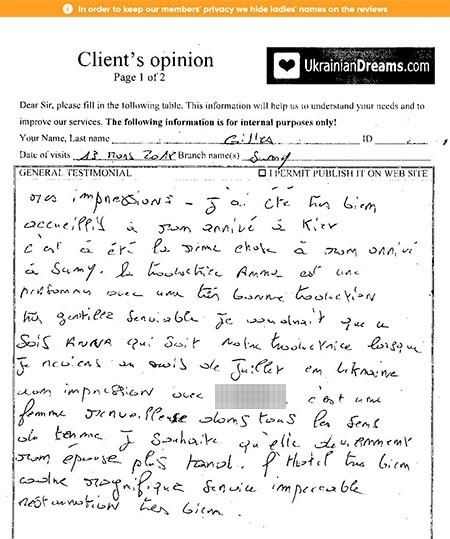 In order to keep our members' privacy we hide ladies' names on the reviews
Client's opinion
Page 1 of 2
UkrainianDreams.com
Dear Sir, please fill in the following table. This information will help us to understand your needs and to
improve our services. The following information is for internal purposes only!
Your Name, Last name Gilles ID
Date of visits 13 mars 2018 Branch name(s) Sumy
GENERAL TESTIMONIAL I PERMIT PUBLISH IT ON WEB SITE
mes impressions - J'ai été très bien
accueillis à mon arrivé à Kiev
c'est à été la même chose à mon arrivé
à Sumy. la traductrice Anna est une
personne avec une très bonne traduction
très gentille serviable je voudrait que ce
sois ANNA qui soit notre traductrice lorsque
je reviens au mois de Juillet en Ukraine
mon impression avec c'est une
femme merveilleuse dans tous les sens
du terme Je souhaite qu'elle deviennent
mon epouse plus tard. l'Hotel très bien
cadre magnifique service impeccable
restauration très bien.